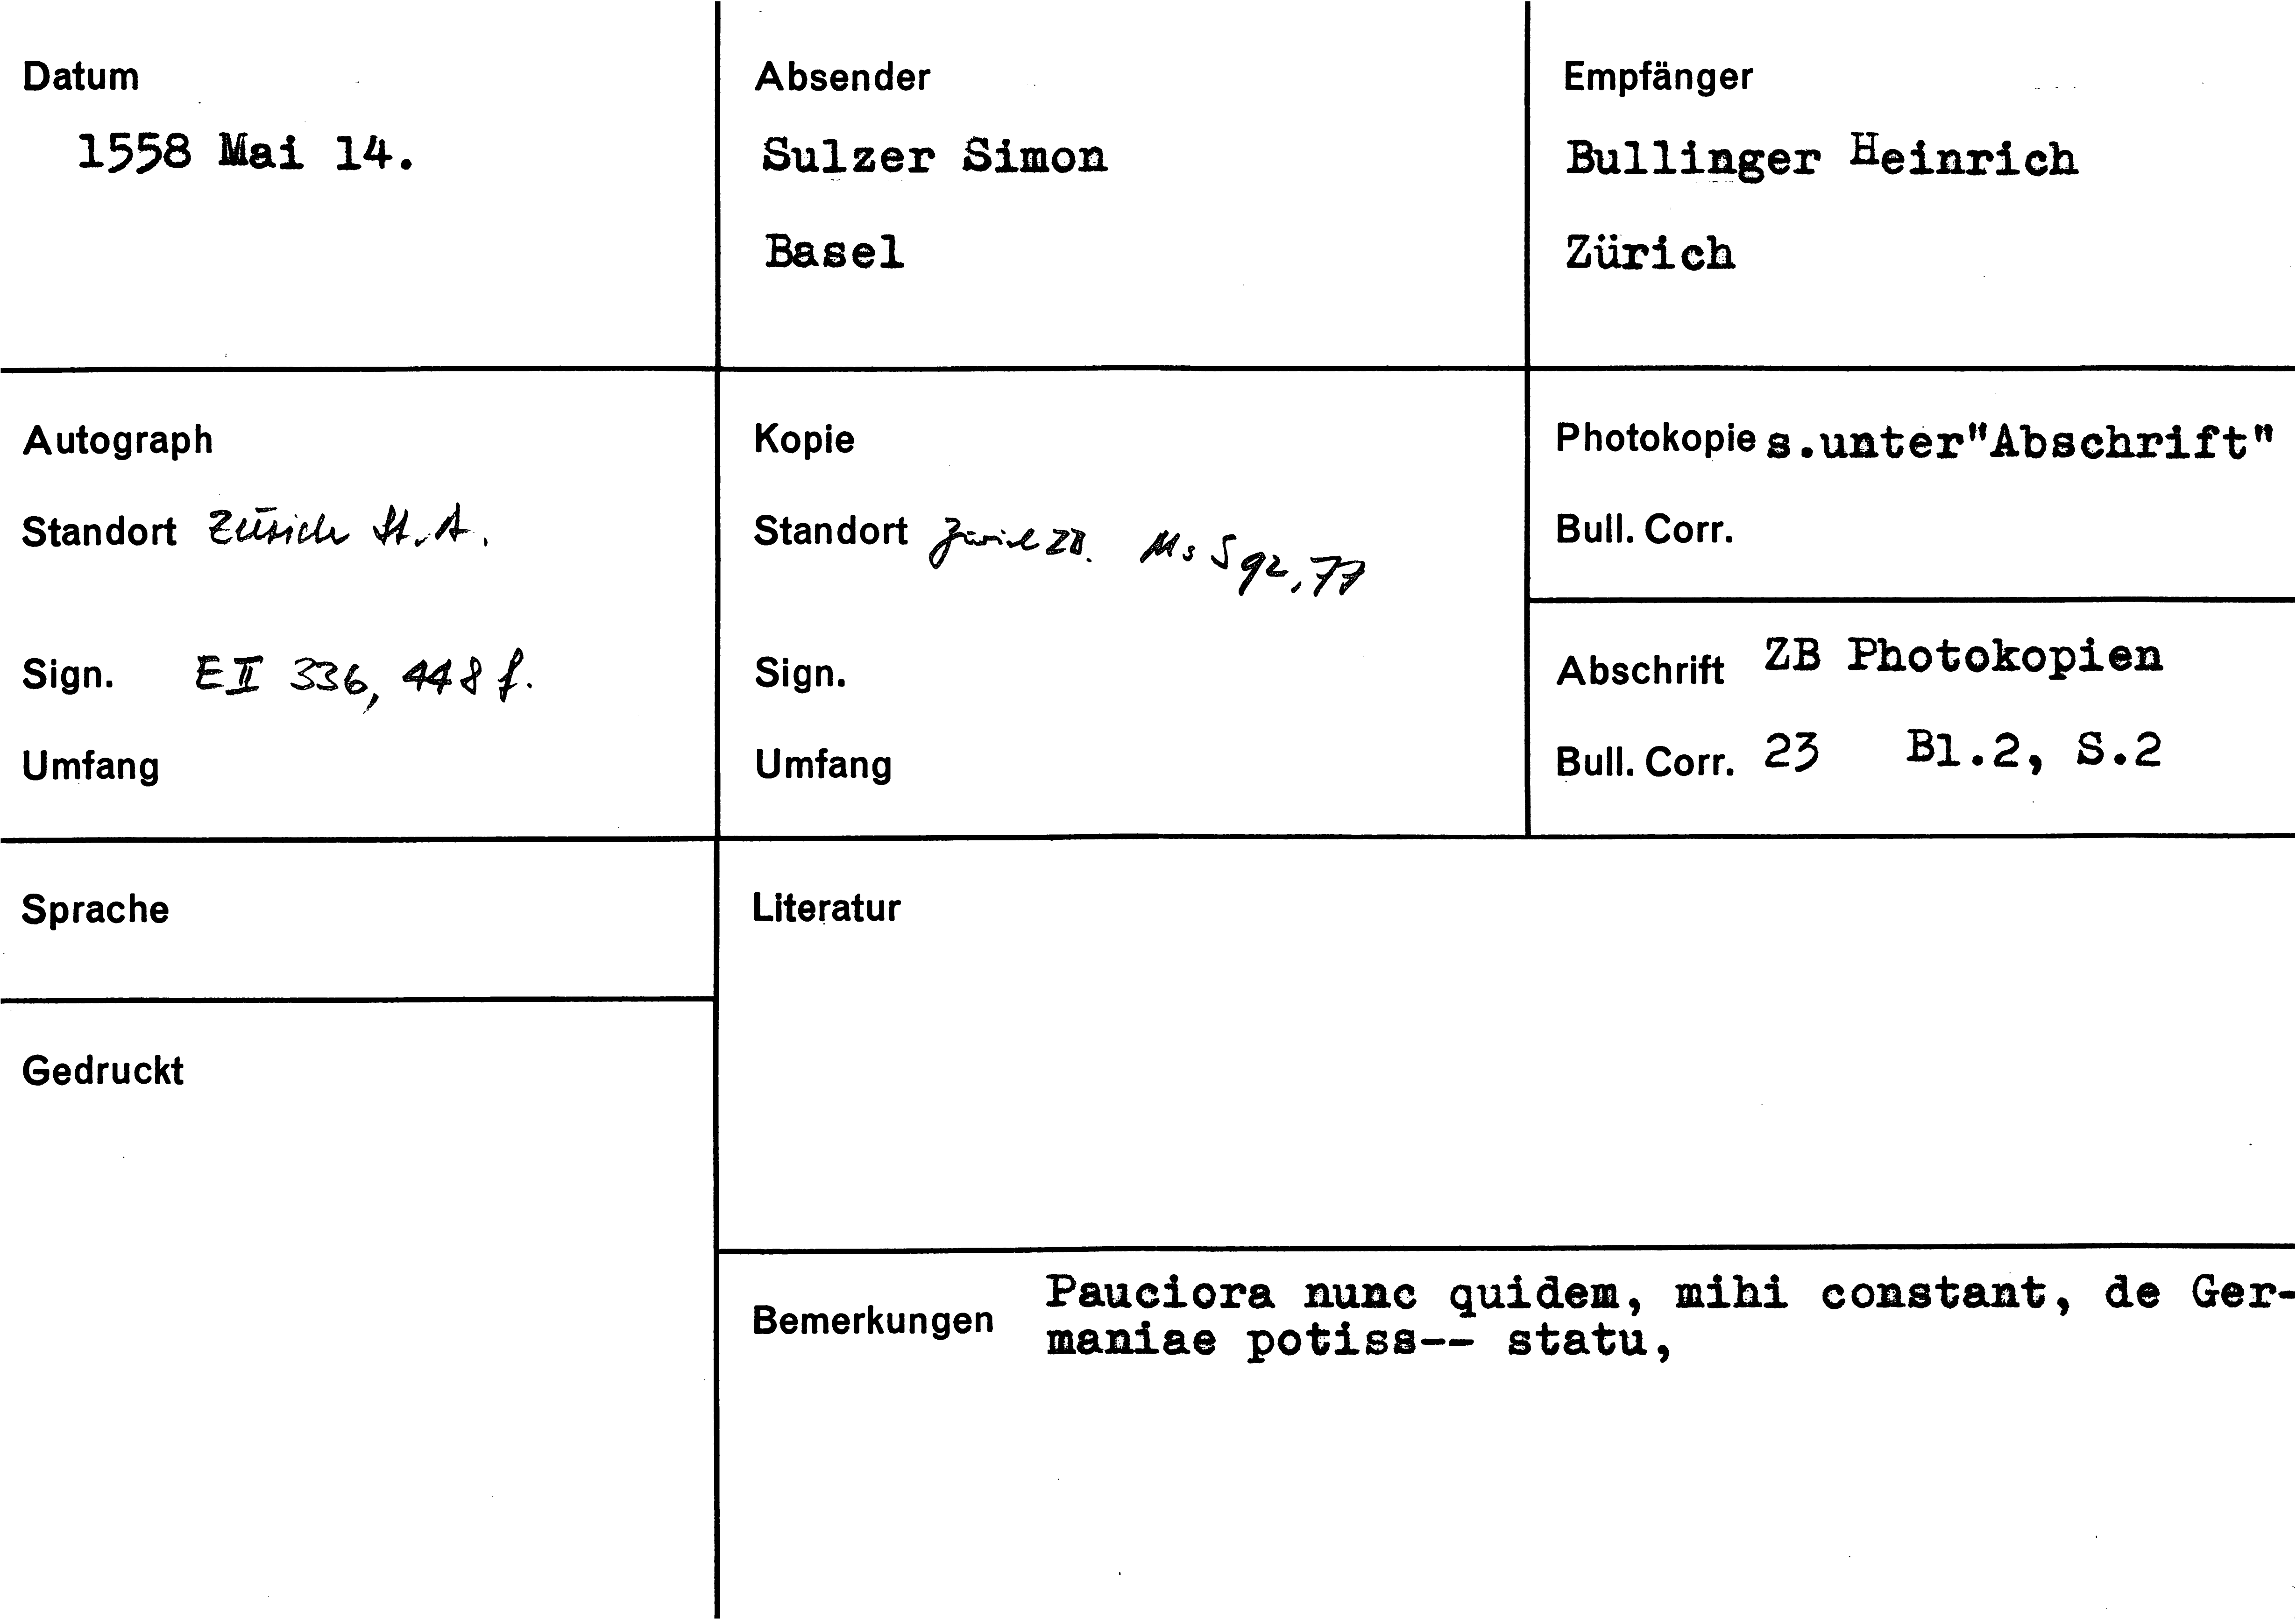 Datum
1558 Mai 14.
Absender
Sulzer Simon
Basel
Empfänger
Bullinger Heinrich
Zürich
Autograph
Standort Zürich St.A.
Sign. E II 336, 448 f.
Umfang
Kopie
Standort Zürich ZB. Ms S 92, 77
Sign.
Umfang
Photokopie s.unter"Abschrift"
Bull. Corr.
Abschrift ZB Photokopien
Bull. Corr. 23 Bl.2, S.2
Sprache
Gedruckt
Literatur
Bemerkungen Pauciora nunc quidem, mihi constant, de Ger-
maniae potiss-- statu,